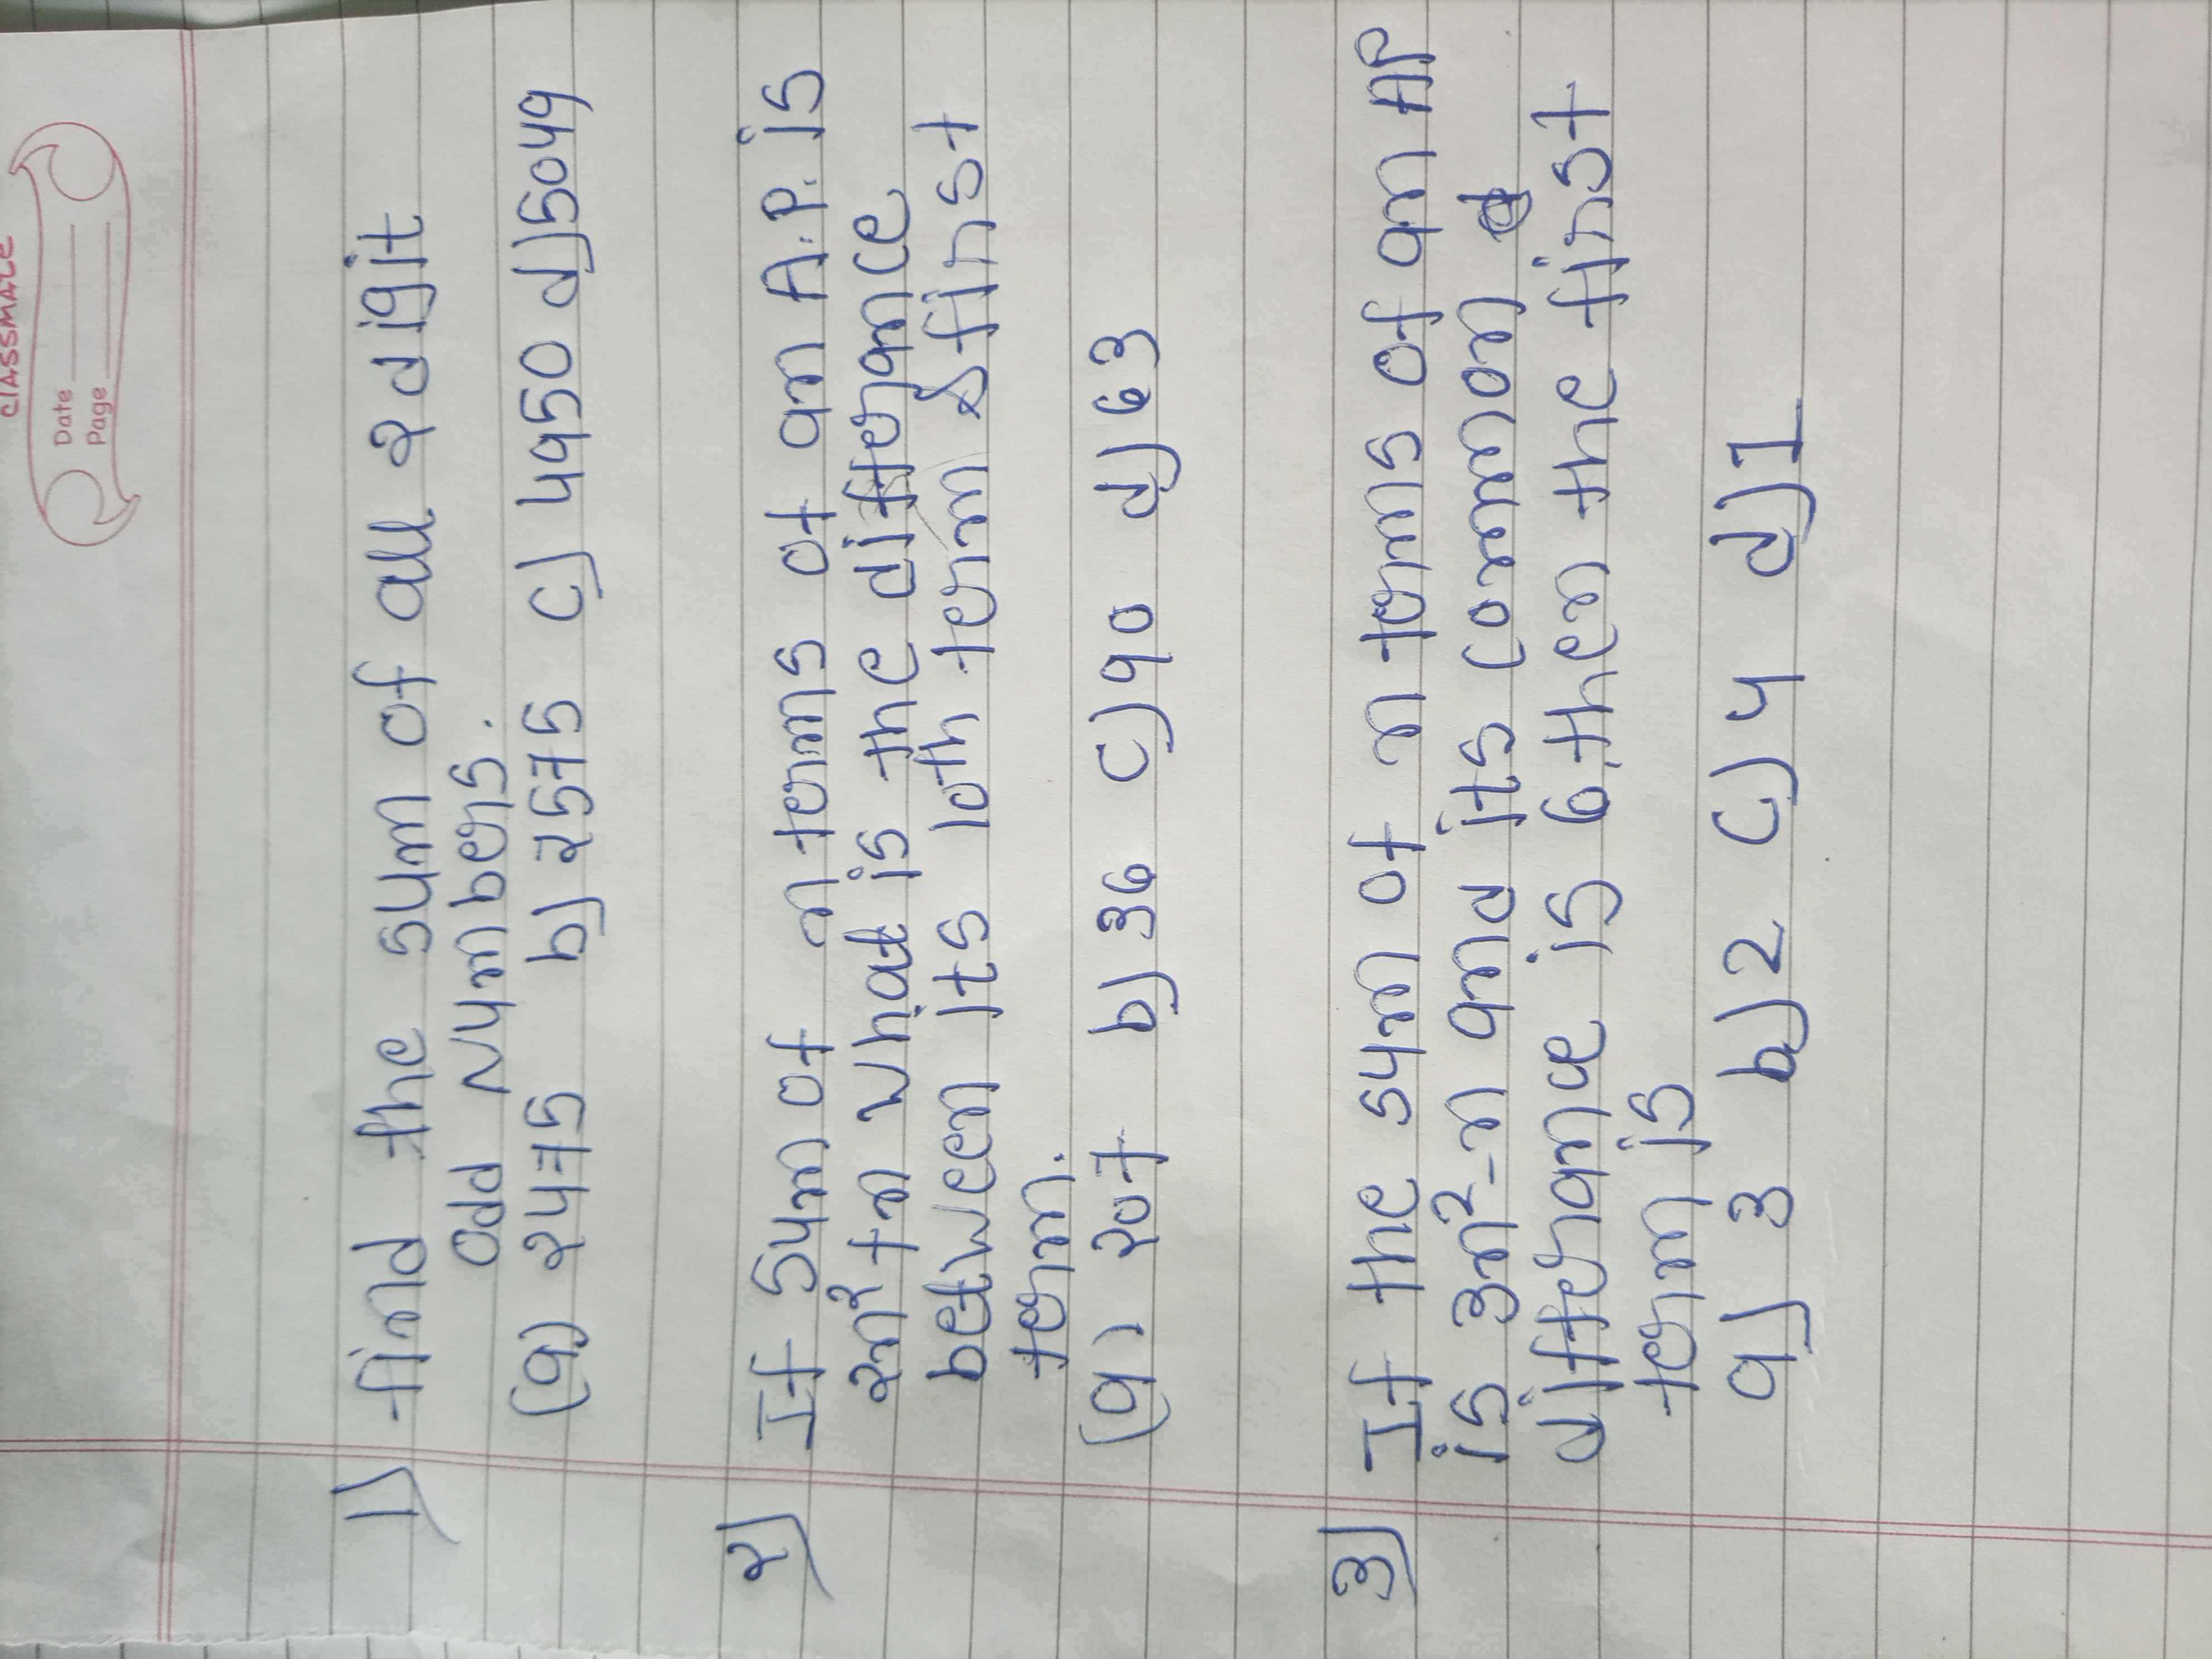 classmate
Date
Page
1) find the sum of all 2 digit
odd Numbers.
(a) 2475 b) 2575 c) 4950 d) 5049
2) If sum of n terms of an A.P. is
2n²+n what is the differance
between its 10th term & first
term.
(a) 207 b) 36 c) 90 d) 63
3) If the sum of n terms of an AP
is 3n²-n and its common
differance is 6 then the first
term is
a) 3 b) 2 c) 4 d) 1